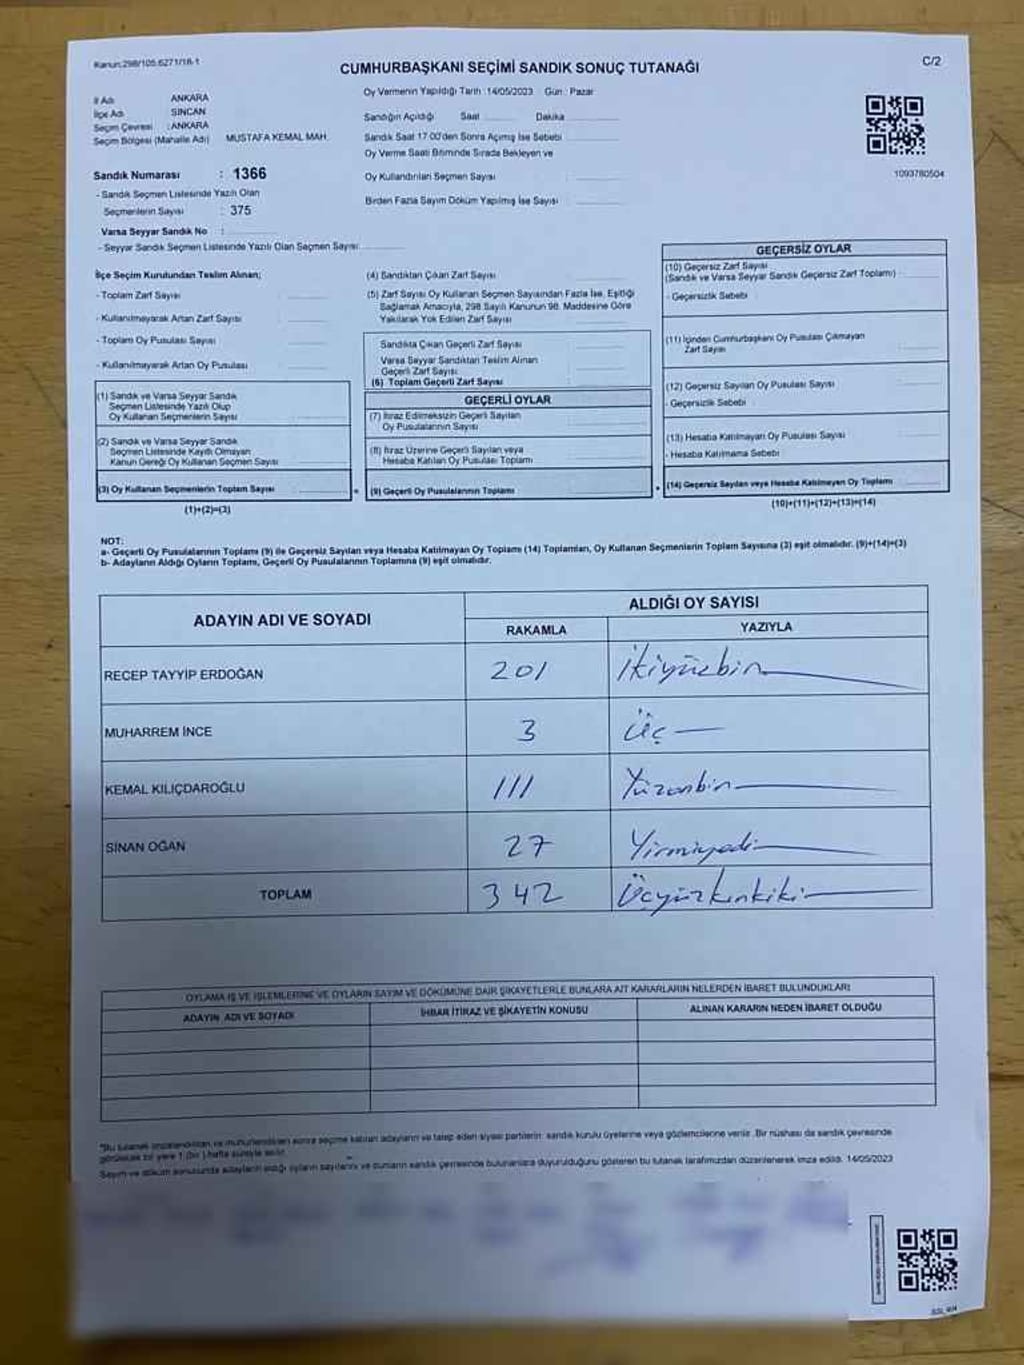 Kanun:298/105,6271/18-1
CUMHURBAŞKANI SEÇİMİ SANDIK SONUÇ TUTANAĞI
C/2
İl Adı ANKARA
İlçe Adı SİNCAN
Seçim Çevresi :ANKARA
Seçim Bölgesi (Mahalle Adı) MUSTAFA KEMAL MAH.
Sandık Numarası : 1366
- Sandık Seçmen Listesinde Yazılı Olan
Seçmenlerin Sayısı : 375
Varsa Seyyar Sandık No :
- Seyyar Sandık Seçmen Listesinde Yazılı Olan Seçmen Sayısı
Oy Vermenin Yapıldığı Tarih :14/05/2023 Gün : Pazar
Sandığın Açıldığı Saat Dakika
Sandık Saat 17.00'den Sonra Açılmış İse Sebebi
Oy Verme Saati Bitiminde Sırada Bekleyen ve
Oy Kullandırılan Seçmen Sayısı :
Birden Fazla Sayım Döküm Yapılmış İse Sayısı :
1093780504
İlçe Seçim Kurulundan Teslim Alınan;
- Toplam Zarf Sayısı
- Kullanılmayarak Artan Zarf Sayısı
- Toplam Oy Pusulası Sayısı
- Kullanılmayarak Artan Oy Pusulası
(1) Sandık ve Varsa Seyyar Sandık
Seçmen Listesinde Yazılı Olup
Oy Kullanan Seçmenlerin Sayısı
(2) Sandık ve Varsa Seyyar Sandık
Seçmen Listesinde Kayıtlı Olmayan
Kanun Gereği Oy Kullanan Seçmen Sayısı
(3) Oy Kullanan Seçmenlerin Toplam Sayısı
(1)+(2)=(3)
(4) Sandıktan Çıkan Zarf Sayısı
(5) Zarf Sayısı Oy Kullanan Seçmen Sayısından Fazla İse, Eşitliği
Sağlamak Amacıyla, 298 Sayılı Kanunun 98. Maddesine Göre
Yakılarak Yok Edilen Zarf Sayısı
Sandıkta Çıkan Geçerli Zarf Sayısı
Varsa Seyyar Sandıktan Teslim Alınan
Geçerli Zarf Sayısı
(6) Toplam Geçerli Zarf Sayısı
GEÇERLİ OYLAR
(7) İtiraz Edilmeksizin Geçerli Sayılan
Oy Pusulalarının Sayısı
(8) İtiraz Üzerine Geçerli Sayılan veya
Hesaba Katılan Oy Pusulası Toplamı
(9) Geçerli Oy Pusulalarının Toplamı
GEÇERSİZ OYLAR
(10) Geçersiz Zarf Sayısı
(Sandık ve Varsa Seyyar Sandık Geçersiz Zarf Toplamı)
- Geçersizlik Sebebi :
(11) İçinden Cumhurbaşkanı Oy Pusulası Çıkmayan
Zarf Sayısı
(12) Geçersiz Sayılan Oy Pusulası Sayısı
- Geçersizlik Sebebi :
(13) Hesaba Katılmayan Oy Pusulası Sayısı
- Hesaba Katılmama Sebebi :
(14) Geçersiz Sayılan veya Hesaba Katılmayan Oy Toplamı
(10)+(11)+(12)+(13)=(14)
NOT:
a- Geçerli Oy Pusulalarının Toplamı (9) ile Geçersiz Sayılan veya Hesaba Katılmayan Oy Toplamı (14) Toplamları, Oy Kullanan Seçmenlerin Toplam Sayısına (3) eşit olmalıdır. (9)+(14)=(3)
b- Adayların Aldığı Oyların Toplamı, Geçerli Oy Pusulalarının Toplamına (9) eşit olmalıdır.
ADAYIN ADI VE SOYADI ALDIĞI OY SAYISI
RAKAMLA YAZIYLA
RECEP TAYYİP ERDOĞAN 201 İkiyüzbir
MUHARREM İNCE 3 Üç
KEMAL KILIÇDAROĞLU 111 Yüzonbir
SİNAN OĞAN 27 Yirmiyedi
TOPLAM 342 Üçyüzkırkiki
OYLAMA İŞ VE İŞLEMLERİNE VE OYLARIN SAYIM VE DÖKÜMÜNE DAİR ŞİKAYETLERLE BUNLARA AİT KARARLARIN NELERDEN İBARET BULUNDUKLARI
ADAYIN ADI VE SOYADI İHBAR İTİRAZ VE ŞİKAYETİN KONUSU ALINAN KARARIN NEDEN İBARET OLDUĞU
*Bu tutanak imzalandıktan ve mühürlendikten sonra seçime katılan adayların ve talep eden siyasi partilerin sandık kurulu üyelerine veya gözlemcilerine verilir. Bir nüshası da sandık çevresinde
görülecek bir yere 1 (bir) hafta süreyle asılır.
Sayım ve döküm sonucunda adayların aldığı oyların sayılarını ve bunların sandık çevresinde bulunanlara duyurulduğunu gösteren bu tutanak tarafımızdan düzenlenerek imza edildi. 14/05/2023